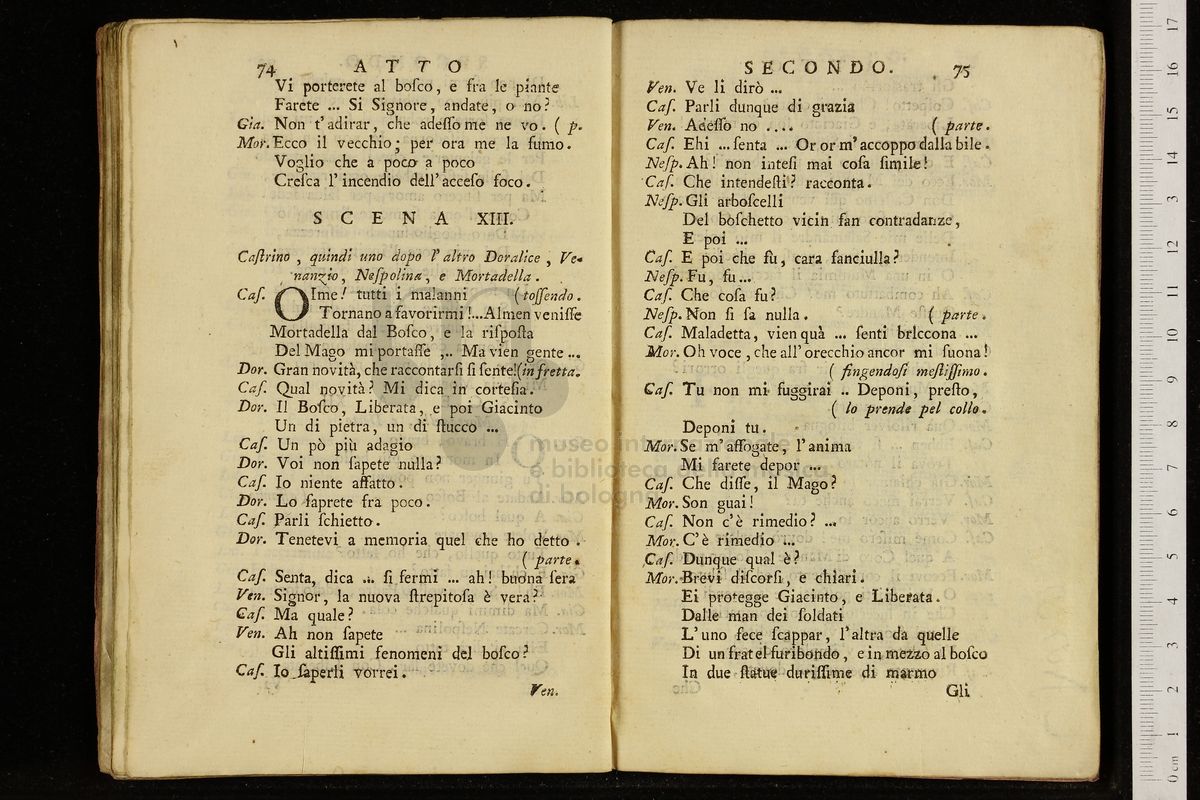 74 ATTO
Vi porterete al boſco, e fra le piante
Farete ... Si Signore, andate, o no?
Gia. Non t'adirar, che adeſſo me ne vo. ( p.
Mor. Ecco il vecchio; per ora me la fumo.
Voglio che a poco a poco
Creſca l'incendio dell'acceſo foco.
SCENA XIII.
Caſtrino, quindi uno dopo l'altro Doralice, Ve-
nanzio, Neſpolina, e Mortadella.
Caſ. OIme! tutti i malanni ( toſſendo.
Tornano a favorirmi!...Almen veniſſe
Mortadella dal Boſco, e la riſpoſta
Del Mago mi portaſſe ;.. Ma vien gente ...
Dor. Gran novità, che raccontarſi ſi ſente!(in fretta.
Caſ. Qual novità? Mi dica in corteſia.
Dor. Il Boſco, Liberata, e poi Giacinto
Un di pietra, un di ſtucco ...
Caſ. Un pò più adagio
Dor. Voi non ſapete nulla?
Caſ. Io niente affatto.
Dor. Lo ſaprete fra poco.
Caſ. Parli ſchietto.
Dor. Tenetevi a memoria quel che ho detto.
( parte.
Caſ. Senta, dica ... ſi fermi ... ah! buona ſera
Ven. Signor, la nuova ſtrepitoſa è vera?
Caſ. Ma quale?
Ven. Ah non ſapete
Gli altiſſimi fenomeni del boſco?
Caſ. Io ſaperli vorrei.
Ven.
SECONDO. 75
Ven. Ve li dirò ...
Caſ. Parli dunque di grazia
Ven. Adeſſo no .... ( parte.
Caſ. Ehi ... ſenta ... Or or m'accoppo dalla bile.
Neſp. Ah! non inteſi mai coſa ſimile!
Caſ. Che intendeſti? racconta.
Neſp. Gli arboſcelli
Del boſchetto vicin fan contradanze,
E poi ...
Caſ. E poi che fu, cara fanciulla?
Neſp. Fu, fu...
Caſ. Che coſa fu?
Neſp. Non ſi ſa nulla. ( parte.
Caſ. Maladetta, vien quà ... ſenti brIccona ...
Mor. Oh voce, che all'orecchio ancor mi ſuona!
( fingendoſi meſtiſſimo.
Caſ. Tu non mi fuggirai .. Deponi, preſto,
( lo prende pel collo.
Deponi tu.
Mor. Se m'affogate, l'anima
Mi farete depor ...
Caſ. Che diſſe, il Mago?
Mor. Son guai!
Caſ. Non c'è rimedio? ...
Mor. C'è rimedio ...
Caſ. Dunque qual è?
Mor. Brevi diſcorſi, e chiari.
Ei protegge Giacinto, e Liberata.
Dalle man dei ſoldati
L'uno fece ſcappar, l'altra da quelle
Di un fratel furibondo, e in mezzo al boſco
In due ſtatue duriſſime di marmo
Gli
museo internazionale
e biblioteca della musica
di bologna
0 cm 1 2 3 4 5 6 7 8 9 10 11 12 13 14 15 16 17